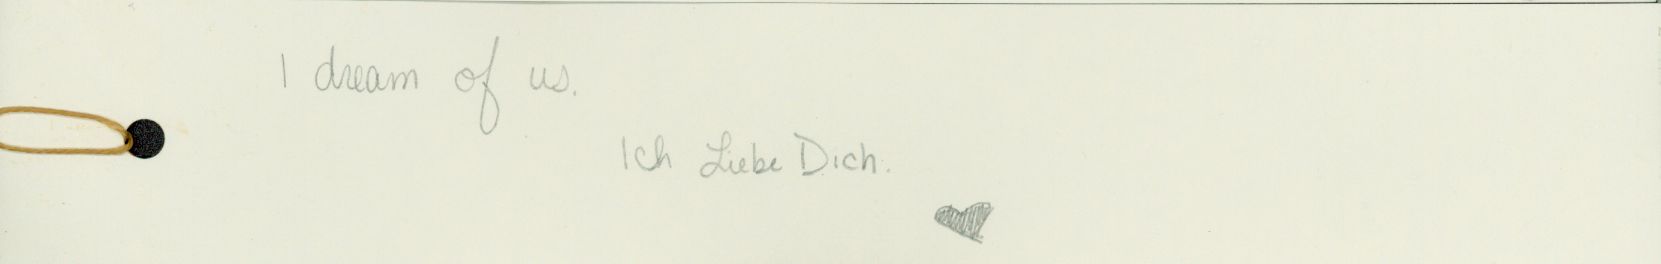 I dream of us.
Ich Liebe Dich.